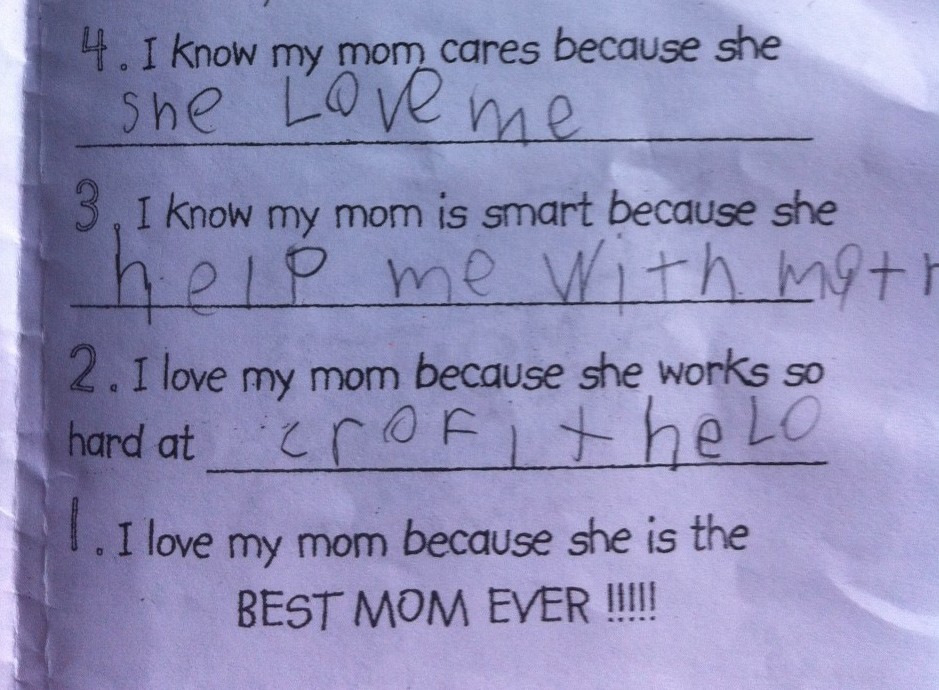 4. I know my mom cares because she
she Love me
3. I know my mom is smart because she
help me with mat
2. I love my mom because she works so
hard at croFit heLO
1. I love my mom because she is the
BEST MOM EVER !!!!!